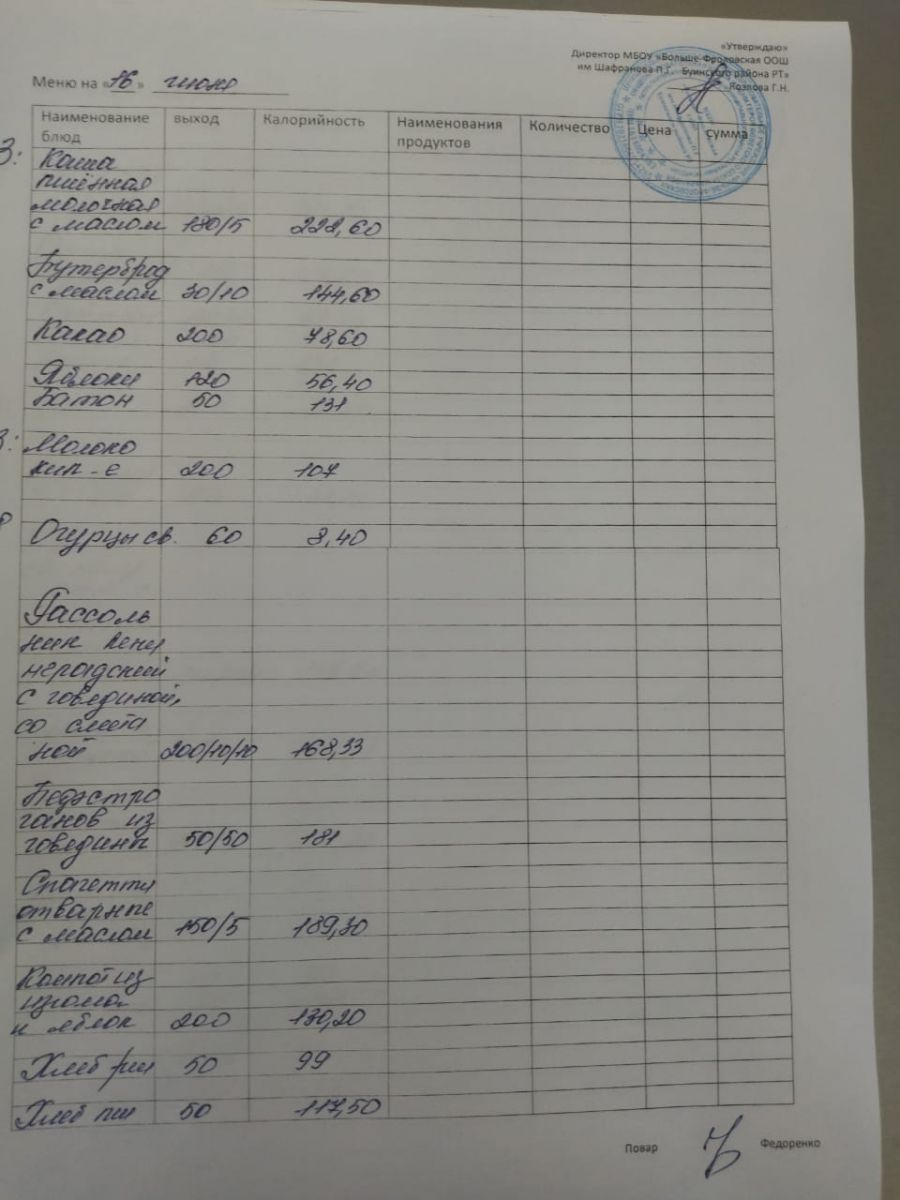 «Утверждаю»
Директор МБОУ «Больше-Фроловская ООШ
им Шафранова П.Г. Буинского района РТ»
Козлова Г.Н.
Меню на «16» июня
Наименование блюд выход Калорийность Наименования продуктов Количество Цена сумма
З:
Каша
пшённая
молочная
с маслом 180/5 222,60
Бутерброд
с маслом 30/10 144,60
Какао 200 78,60
Яблоки 120 56,40
Батон 50 131
Молоко
кип-е 200 107
Огурцы св. 60 8,40
Рассоль
ник Лени
нградский
с говядиной,
со смета
ной 200/10/10 168,33
Бефстро
ганов из
говядины 50/50 181
Спагетти
отварные
с маслом 150/5 189,30
Компот из
изюма
и яблок 200 130,20
Хлеб рж 50 99
Хлеб пш 50 117,50
Повар Федоренко